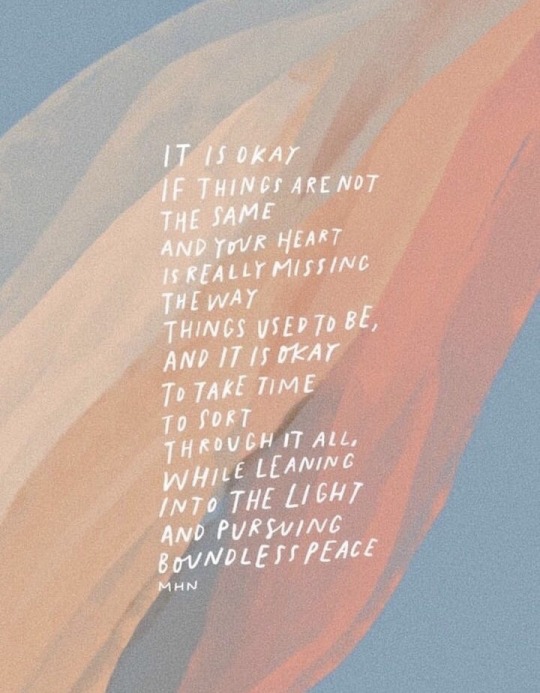 IT IS OKAY
IF THINGS ARE NOT
THE SAME
AND YOUR HEART
IS REALLY MISSING
THE WAY
THINGS USED TO BE,
AND IT IS OKAY
TO TAKE TIME
TO SORT
THROUGH IT ALL,
WHILE LEANING
INTO THE LIGHT
AND PURSUING
BOUNDLESS PEACE
MHN